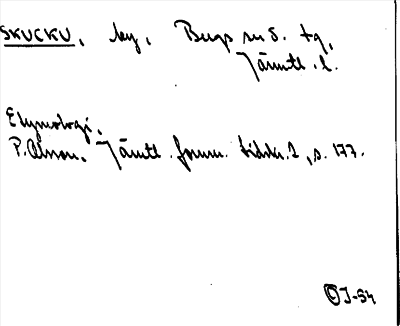 SKUCKU, by, Bergs sn o. tg,
Jämtl. l.
Etymologi,
P. Olsson. Jämtl. fornm. tidskr. 2, s. 177.
OJ-54